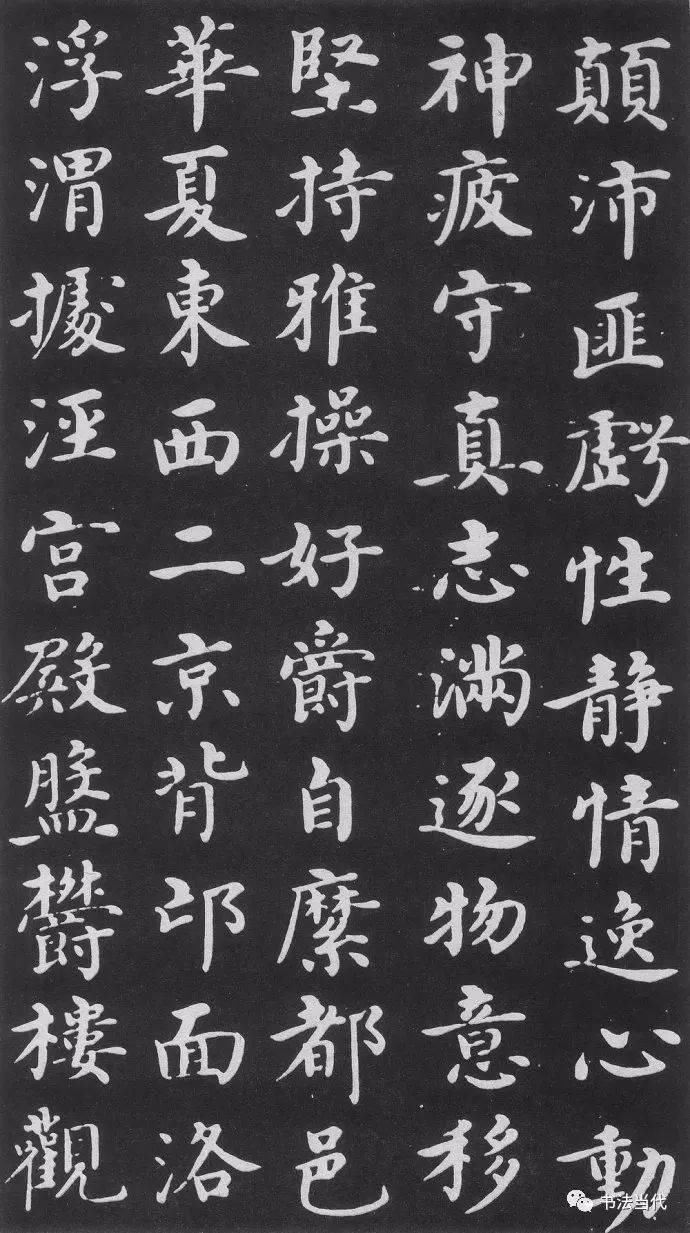 顛沛匪虧性静情逸心動
神疲守真志滿逐物意移
堅持雅操好爵自縻都邑
華夏東西二京背邙面洛
浮渭據涇宫殿盤欝樓觀
书法当代